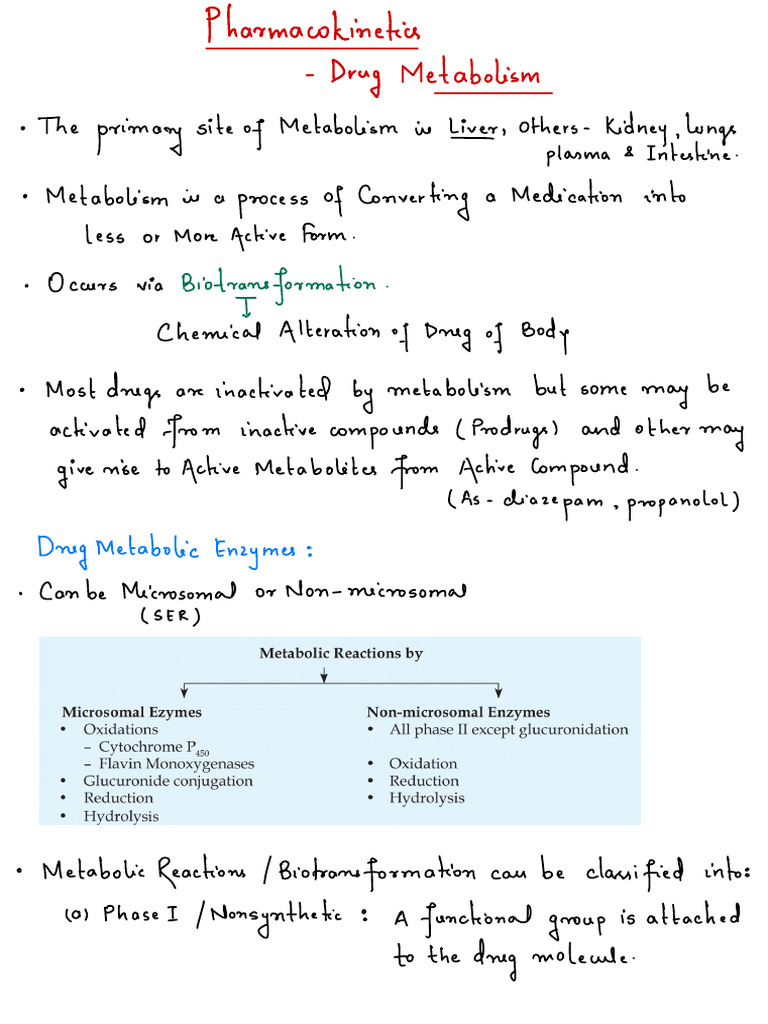 Pharmacokinetics
- Drug Metabolism
• The primary site of Metabolism is Liver, Others - Kidney, lungs
plasma & Intestine.
• Metabolism is a process of Converting a Medication into
less or More Active Form.
• Occurs via Biotransformation.
Chemical Alteration of Drug of Body
• Most drugs are inactivated by metabolism but some may be
activated from inactive compounds (Prodrugs) and other may
give rise to Active Metabolites from Active Compound.
(As - diazepam, propanolol)
Drug Metabolic Enzymes:
• Can be Microsomal or Non-microsomal
(SER)
Metabolic Reactions by
Microsomal Ezymes
• Oxidations
– Cytochrome P450
– Flavin Monoxygenases
• Glucuronide conjugation
• Reduction
• Hydrolysis
Non-microsomal Enzymes
• All phase II except glucuronidation
• Oxidation
• Reduction
• Hydrolysis
• Metabolic Reactions / Biotransformation can be classified into:
(a) Phase I / Nonsynthetic : A functional group is attached
to the drug molecule.